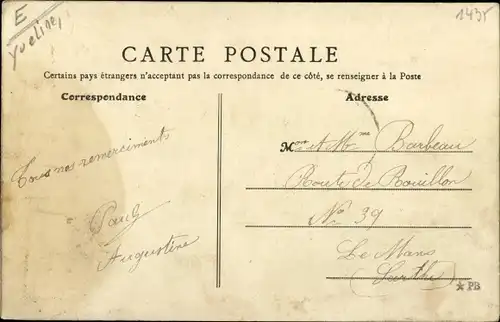 E
Yvelines
1435
CARTE POSTALE
Certains pays étrangers n'acceptant pas la correspondance de ce côté, se renseigner à la Poste
Correspondance
Adresse
Tous nos remerciments
Paul
Augustine
Mr et Mme Barbeau
Route de Rouillon
No 39
Le Mans
(Sarthe)
PB